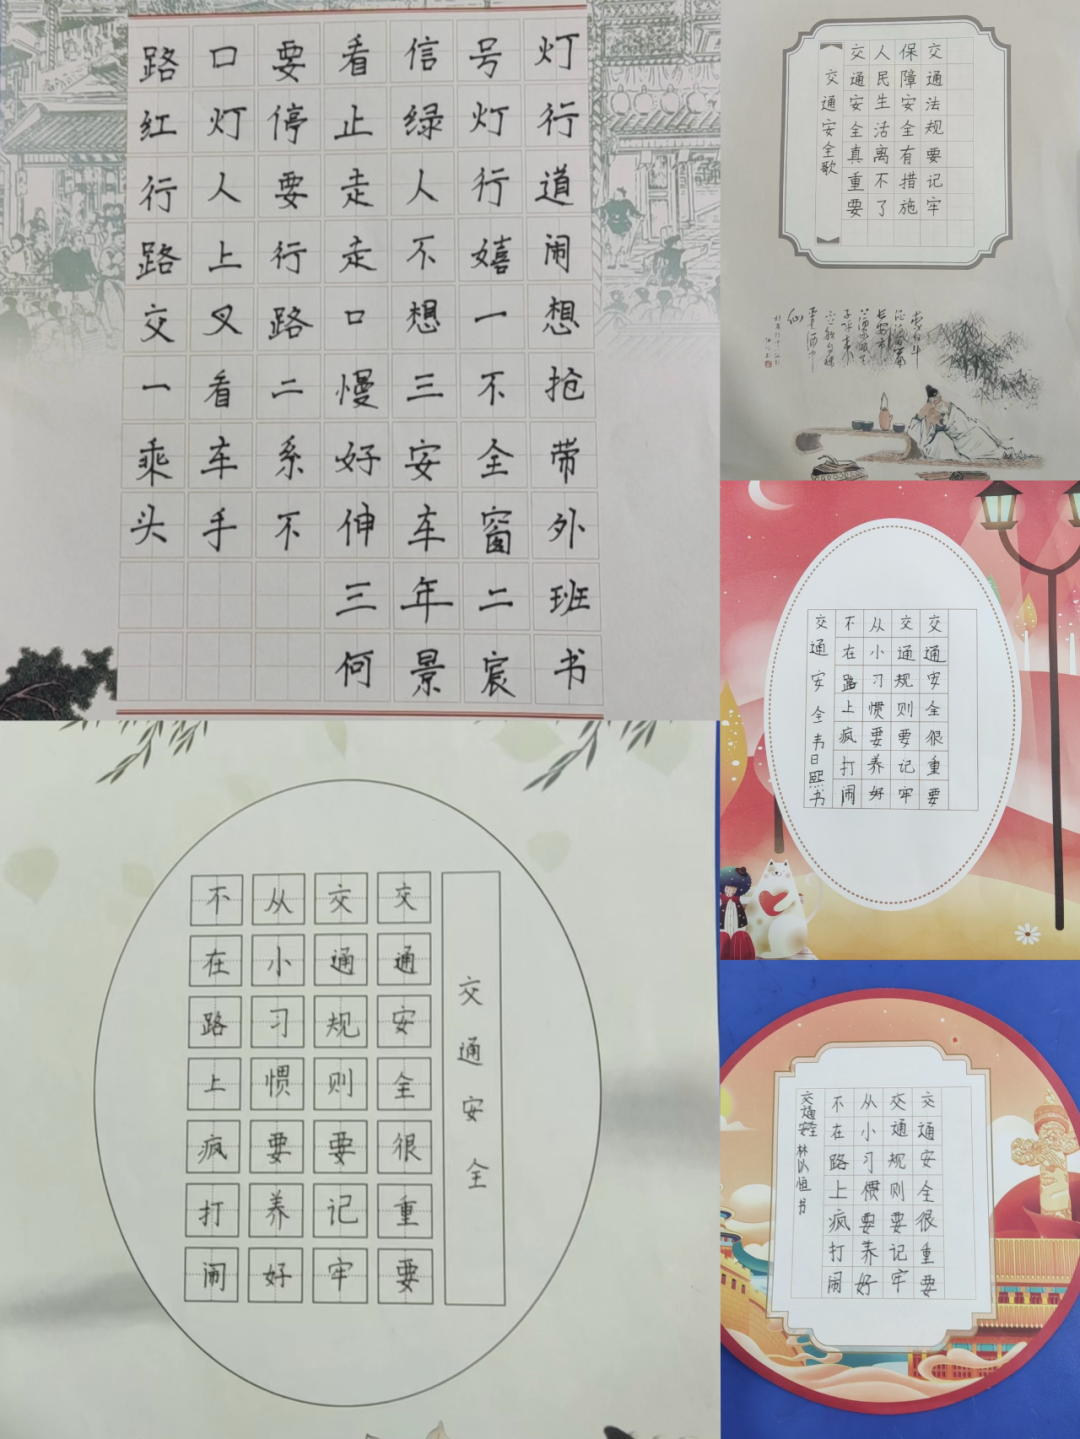 路口要看信号灯
红灯停止绿灯行
行人要走人行道
路上行走不嬉闹
交叉路口想一想
一看二慢三不抢
乘车系好安全带
头手不伸车窗外
三年二班
何景宸书
交通法规要记牢
保障安全有措施
人民生活离不了
交通安全真重要
【交通安全歌】
交通安全很重要
交通规则要记牢
从小习惯要养好
不在路上疯打闹
交通安全 韦日熙书
交通安全
交通安全很重要
交通规则要记牢
从小习惯要养好
不在路上疯打闹
交通安全很重要
交通规则要记牢
从小习惯要养好
不在路上疯打闹
交通安全 林以恒书